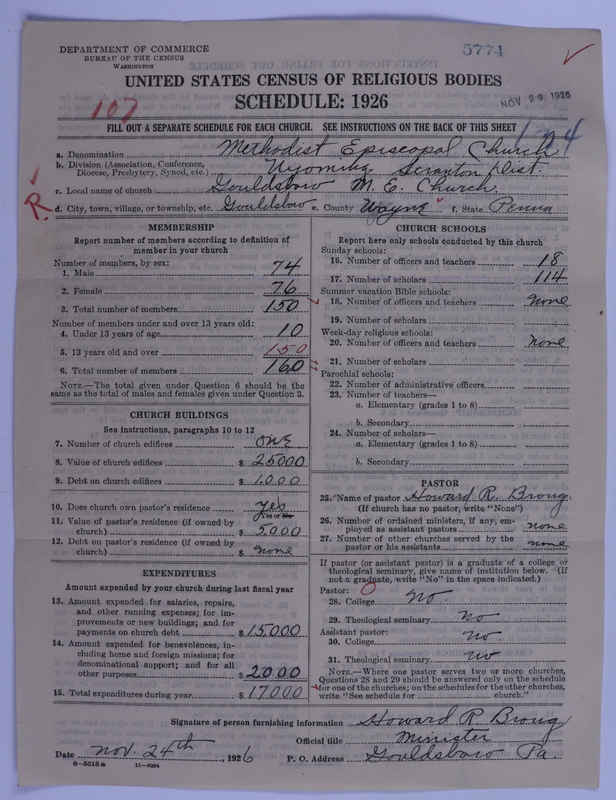 DEPARTMENT OF COMMERCE
BUREAU OF THE CENSUS
WASHINGTON
5774
UNITED STATES CENSUS OF RELIGIOUS BODIES
SCHEDULE: 1926
NOV 29 1926
107
FILL OUT A SEPARATE SCHEDULE FOR EACH CHURCH. SEE INSTRUCTIONS ON THE BACK OF THIS SHEET
a. Denomination Methodist Episcopal Church
b. Division (Association, Conference, Diocese, Presbytery, Synod, etc.) Wyoming Scranton Dist.
c. Local name of church Gouldsboro M. E. Church
R d. City, town, village, or township, etc. Gouldsboro e. County Wayne f. State Penna
MEMBERSHIP
Report number of members according to definition of member in your church
Number of members, by sex:
1. Male 74
2. Female 76
3. Total number of members 150
Number of members under and over 13 years old:
4. Under 13 years of age 10
5. 13 years old and over 150
6. Total number of members 160
NOTE.—The total given under Question 6 should be the same as the total of males and females given under Question 3.
CHURCH BUILDINGS
See instructions, paragraphs 10 to 12
7. Number of church edifices one
8. Value of church edifices $ 25000
9. Debt on church edifices $ 1000
10. Does church own pastor's residence yes
Yes or No
11. Value of pastor's residence (if owned by church) $ 5000
12. Debt on pastor's residence (if owned by church) $ none
EXPENDITURES
Amount expended by your church during last fiscal year
13. Amount expended for salaries, repairs, and other running expenses; for improvements or new buildings; and for payments on church debt $ 15000
14. Amount expended for benevolences, including home and foreign missions; for denominational support; and for all other purposes $ 2000
15. Total expenditures during year $ 17000
CHURCH SCHOOLS
Report here only schools conducted by this church
Sunday schools:
16. Number of officers and teachers 18
17. Number of scholars 114
Summer vacation Bible schools:
18. Number of officers and teachers none
19. Number of scholars
Week-day religious schools:
20. Number of officers and teachers none
21. Number of scholars
Parochial schools:
22. Number of administrative officers
23. Number of teachers—
a. Elementary (grades 1 to 8)
b. Secondary
24. Number of scholars—
a. Elementary (grades 1 to 8)
b. Secondary
PASTOR
25. Name of pastor Howard R. Broug
(If church has no pastor, write "None")
26. Number of ordained ministers, if any, employed as assistant pastors none
27. Number of other churches served by the pastor or his assistants none
If pastor (or assistant pastor) is a graduate of a college or theological seminary, give name of institution below. (If not a graduate, write "No" in the space indicated.)
Pastor:
28. College No
29. Theological seminary no
Assistant pastor:
30. College no
31. Theological seminary no
NOTE.—Where one pastor serves two or more churches, Questions 28 and 29 should be answered only on the schedule for one of the churches; on the schedules for the other churches, write "See schedule for church."
Signature of person furnishing information Howard R. Broug
Official title Minister
Date nov. 24th, 1926 P. O. Address Gouldsboro Pa.
8—5518a 11—9084